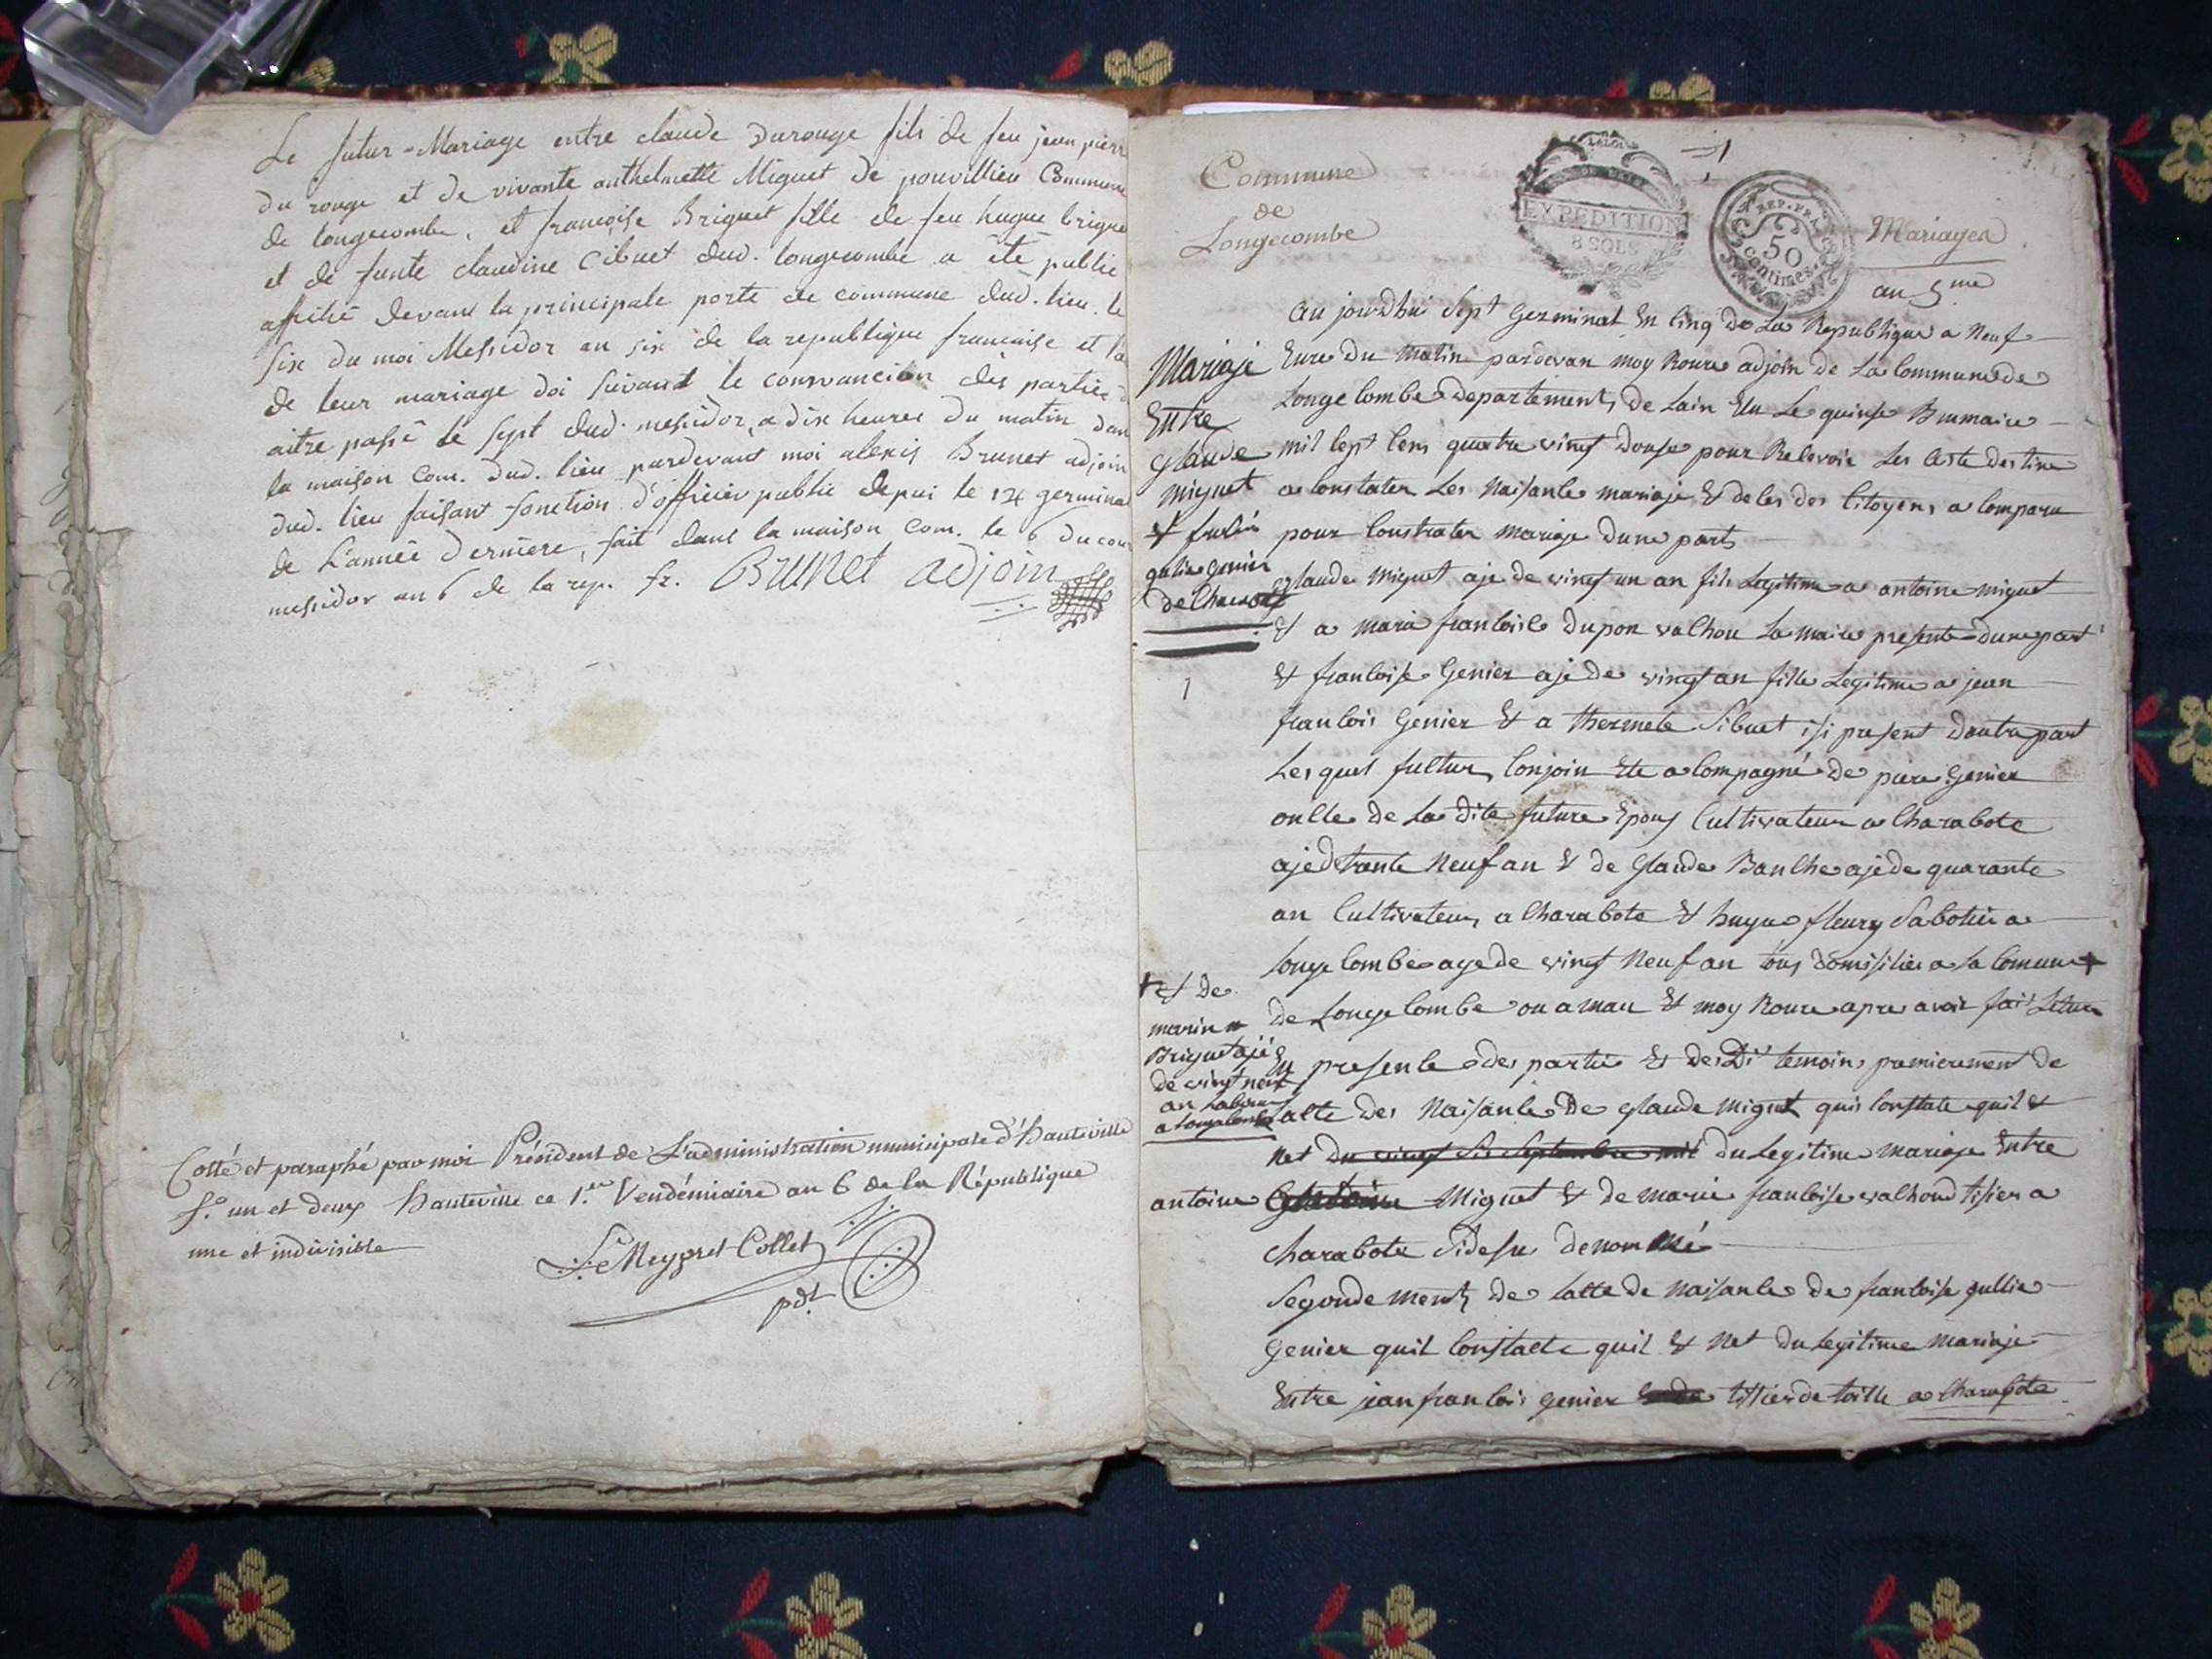 Le futur = Mariage entre claude Durouge fils de feu jean pierr
du rouge et de vivante anthelmette Miguet de pouvillieu Commune
de longecombe, et francoise Briguet fille de feu hugue brigue
et de funte claudine Cibuet dud. longecombe a été publié
affiché devant la principale porte de commune dud. lieu. le
six du moi Messidor an six de la republique francaise et la
de leur mariage doi suivant le convancion des parties
aitre passé le sept dud. messidor, a dix heures du matin dan
la maison Com. dud. lieu pardevant moi alexis Brunet adjoin
dud. lieu faisant fonction d'officier public depui le 12 germinal
de L'année derniere, fait dans la maison Com. le 6 du cou
messidor an 6 de la rep. fr. Brunet adjoin
Cotté et paraphé par moi Président de L'administration municipale d'Hauteville
f.° un et deux Hauteville ce 1.er Vendémiaire an 6 de la République
une et indivisible
Meygret Collet
pdt
Commune
de
Longecombe
LA LOI
EXPEDITION
8 SOLS
REP. FRA.
50
centimes
1
Mariages
an 5me
Mariaje
Entre
glaude
miguet
& fransoise
gulie genier
de Charabote
1
au jourdhui Sept Germinal En Cinq de La Republique a Neuf
Eure du Matin pardevan moy Roure adjoin de La Commune de
Longe Combe departement de Lain Elu Le quinse Brumaire
mil Sept Cens quatre vingt Douse pour Relevoir Les acte destine
a Constater Les Naisance mariaje & deles des Citoyens a Comparu
pour Constrater mariaje dune part
glaude miguet aje de vingt un an fils Legitime a antoine miguet
& a maria francoise Dupon valhou La maire presente dune part
& francoise Genier aje de vingt an fille Legitime a jean
francois Genier & a thermete Sibuet isi present dautre part
Les quel fultur Conjoin Ete acCompagné de piere Genier
oncle de La dite future Epous Cultivateur a Charabote
aje de trante Neuf an & de Glaude Banche aje de quarante
an Cultivateur a Charabote & hugue fleury Sabotier a
Longe Combe age de vingt Neuf an tous domisilier a La Comune +
+ & De
marin
Briguet ajé
de vingt neuf
an Laboureur
a Longecombe
de Longe Combe ou aman & moy Roure apre avoir fait Letur
En presence des partie & des Di temoins premierement de
acte des Naisance De glaude miguet quis Constate quil &
Net du vingt Sis Septembre mil du Legitime mariaje Entre
antoine Miguet & de marie francoise valhoud tisier a
Charabote Sidesu denommé
Segonde ment de Latte de Naisance de francoise gullie
Genier quil Constacte quil & Net du Legitime mariaje
Entre jean francois genier tissier de toille a Charabote